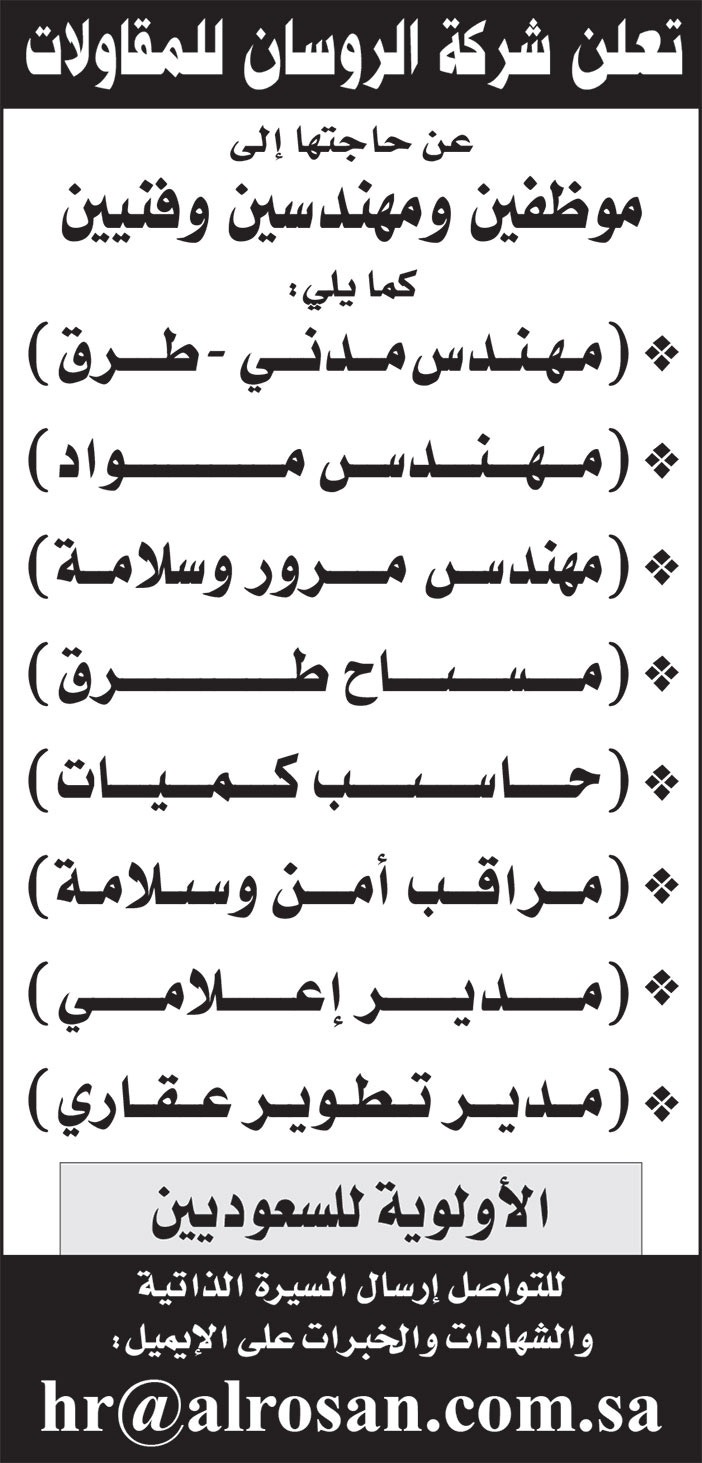 تعلن شركة الروسان للمقاولات
عن حاجتها إلى
موظفين ومهندسين وفنيين
كما يلي:
❖ (مهندس مدني - طرق)
❖ (مهندس مواد)
❖ (مهندس مرور وسلامة)
❖ (مساح طرق)
❖ (حاسب كميات)
❖ (مراقب أمن وسلامة)
❖ (مدير إعلامي)
❖ (مدير تطوير عقاري)
الأولوية للسعوديين
للتواصل إرسال السيرة الذاتية
والشهادات والخبرات على الإيميل:
hr@alrosan.com.sa